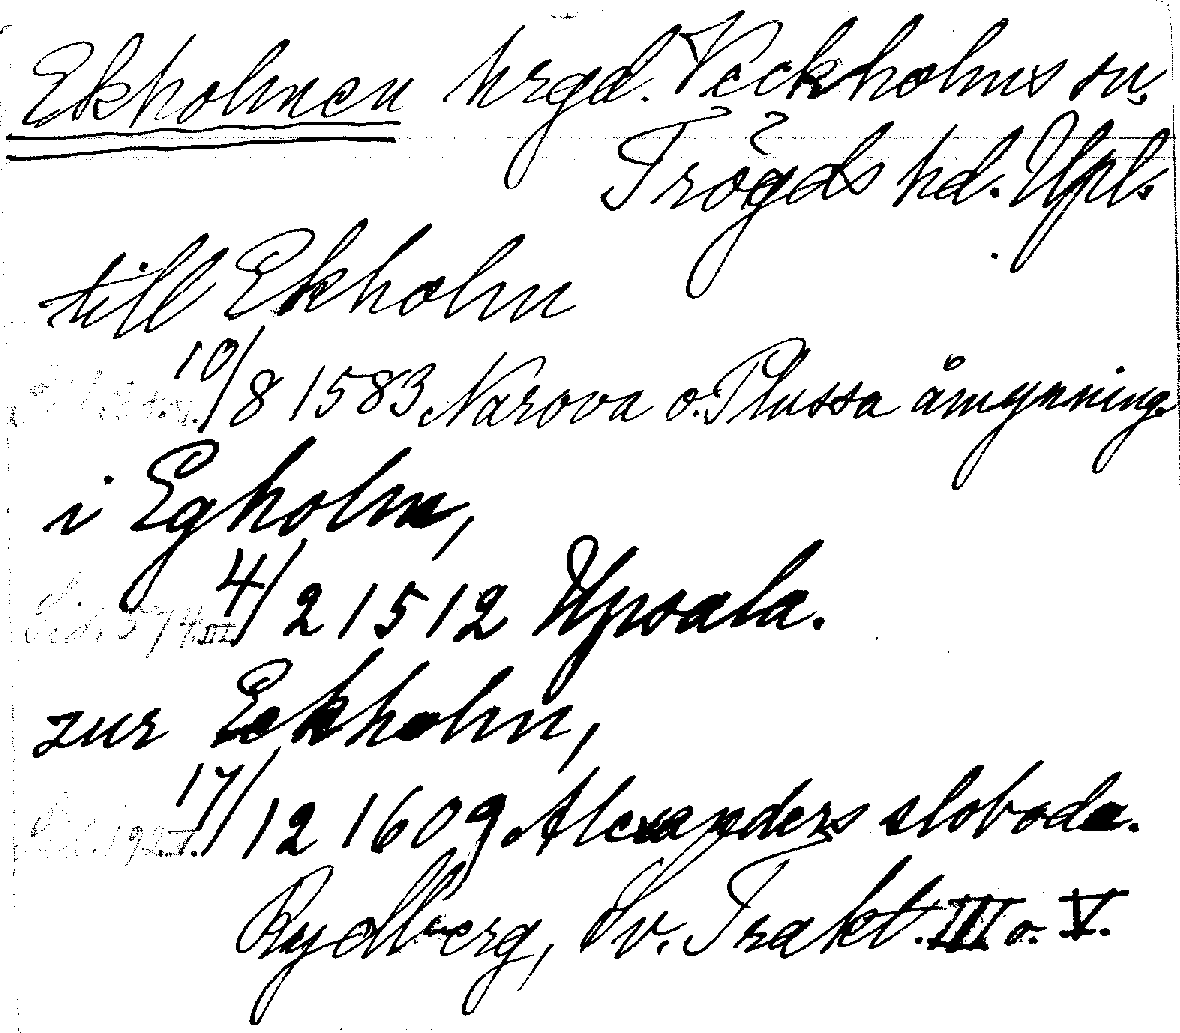 Ekholmen hrgd. Veckholms sn.
Trögds hd. Upl.
till Ekholm
10/8 1583 Narova o. Plussa åmynning.
i Egholm,
Sid. 574.III 4/2 1512 Upsala.
zur Eckholm,
17/12 1609 Alexanders sloboda.
Rydberg, Sv. Trakt. III o. V.